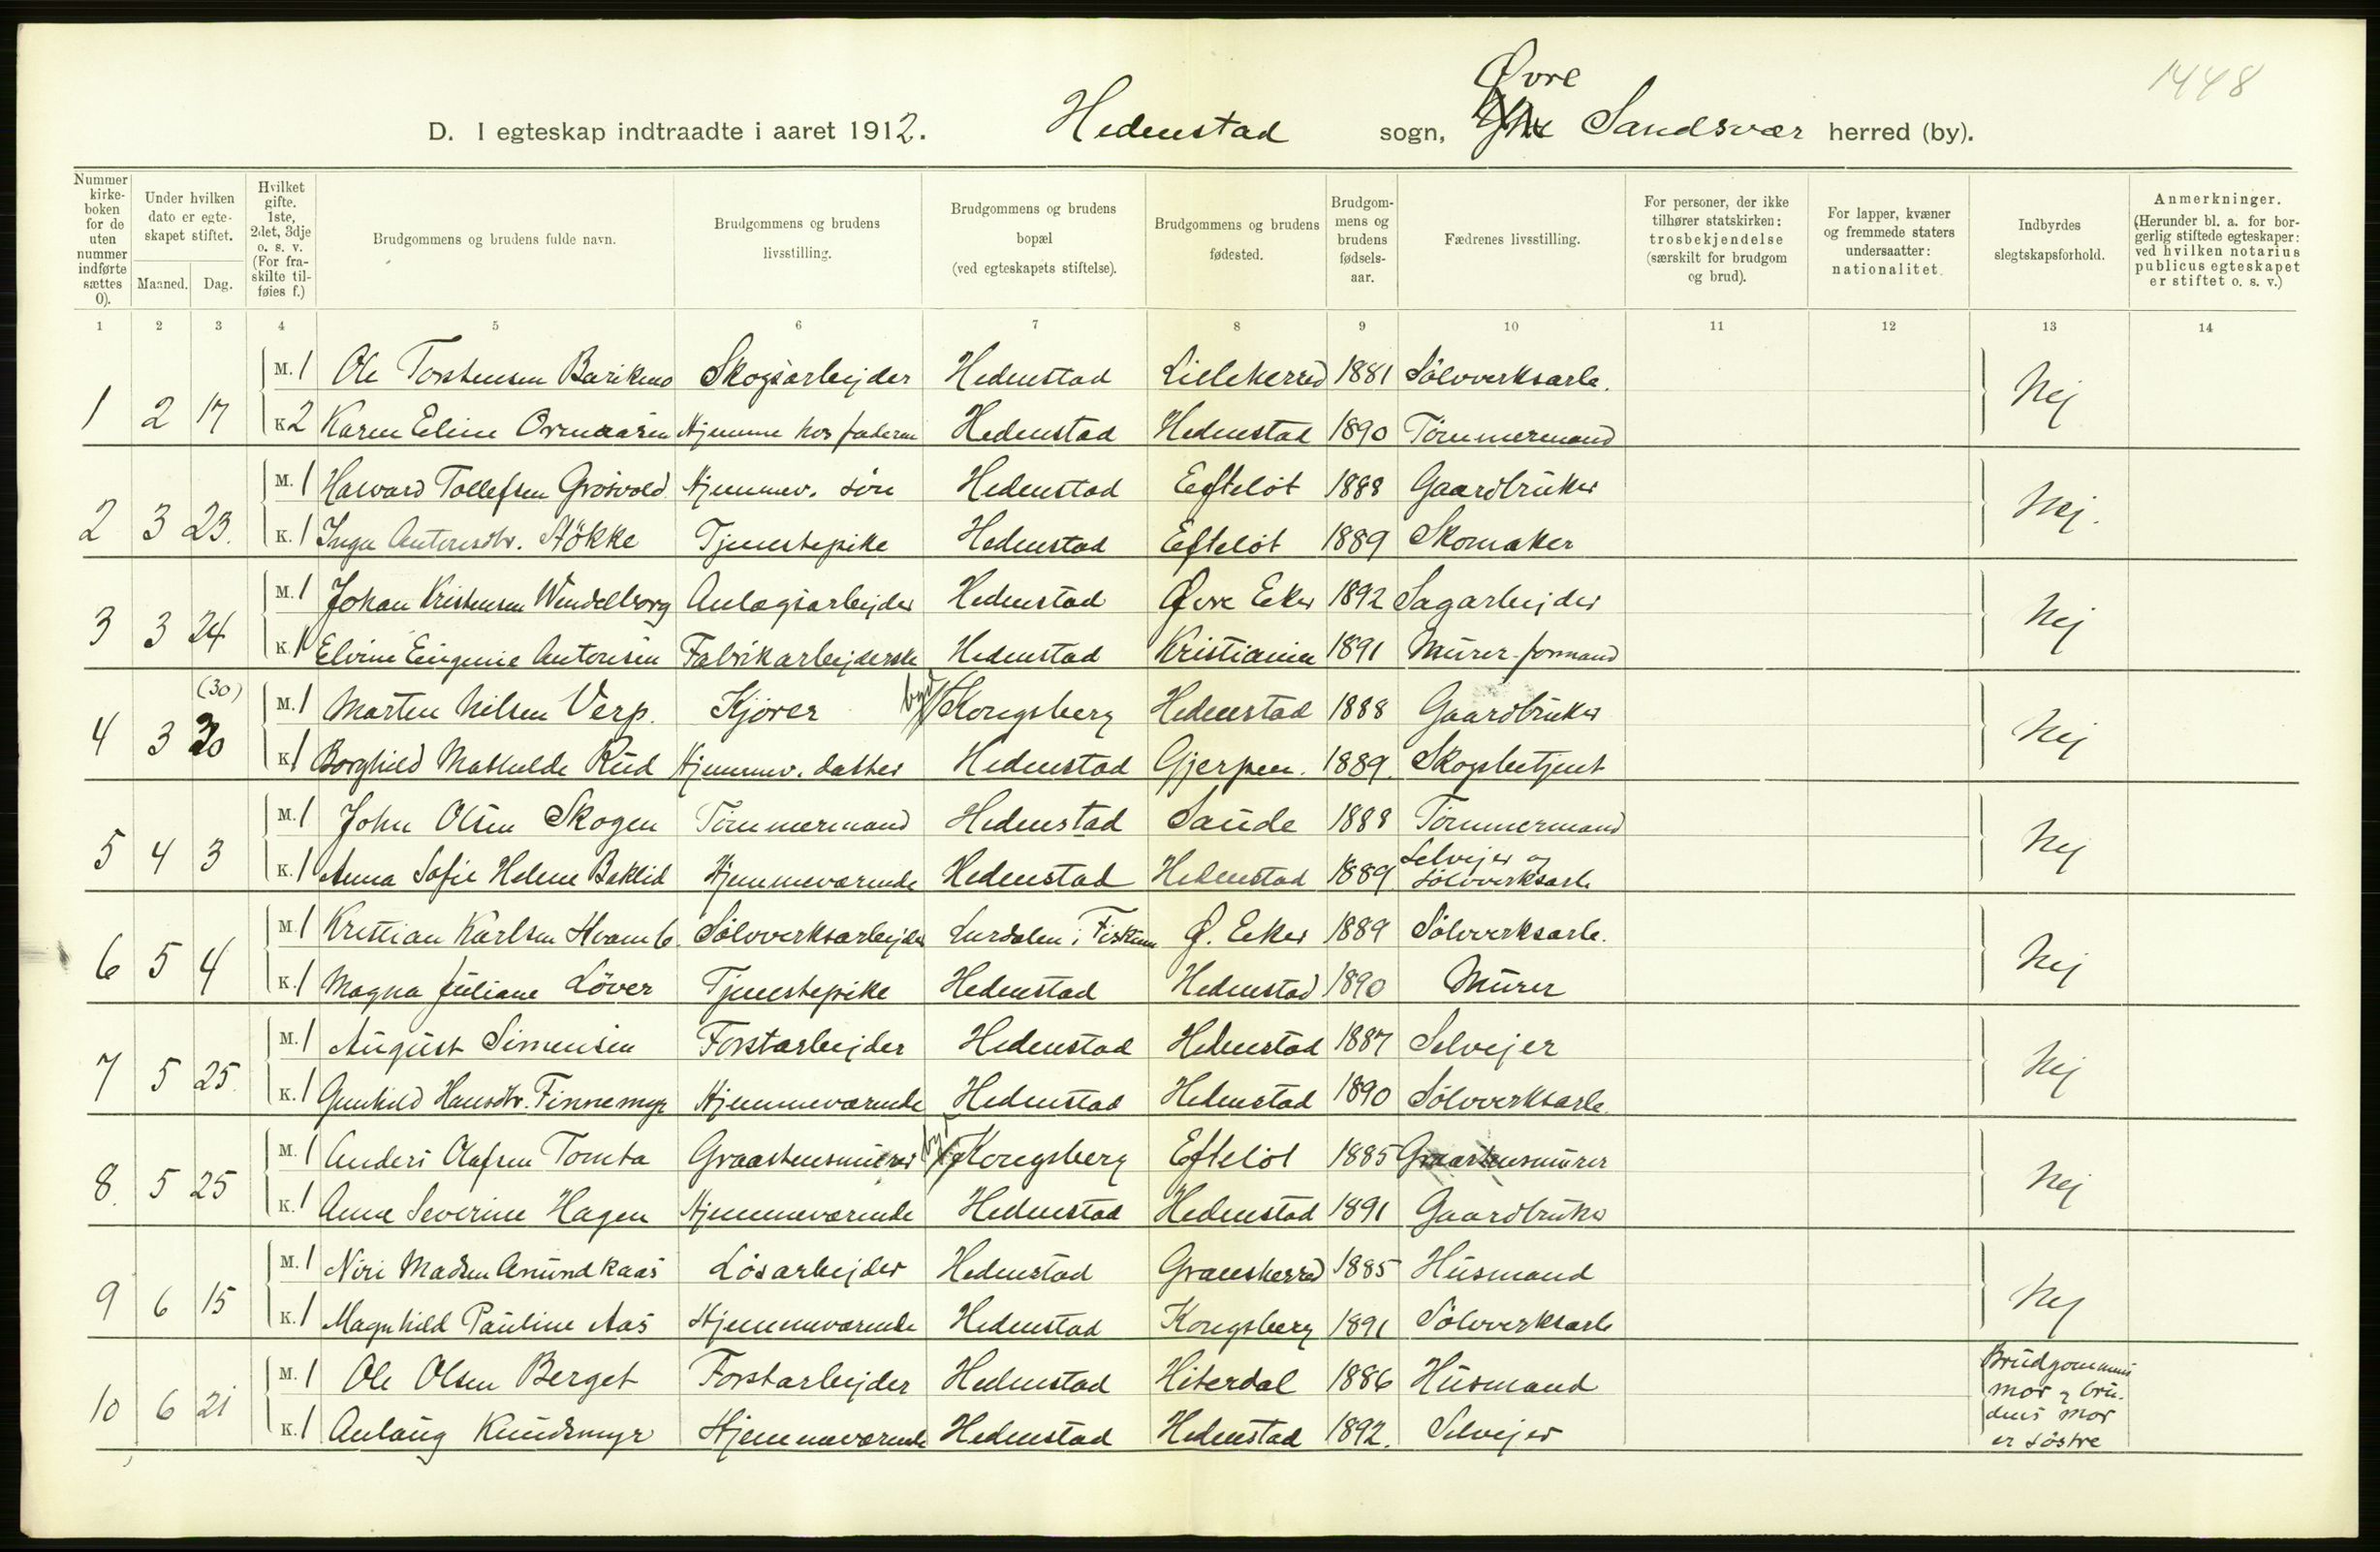 1448
Øvre
D. I egteskap indtraadte i aaret 1912. Hedenstad sogn, Sandsvær herred (by).
Nummer i kirkeboken for de uten nummer indførte sættes 0). | Under hvilken dato er egteskapet stiftet. Maaned. Dag. | Hvilket gifte. 1ste, 2det, 3dje o. s. v. (For fraskilte tilføies f.) | Brudgommens og brudens fulde navn. | Brudgommens og brudens livsstilling. | Brudgommens og brudens bopæl (ved egteskapets stiftelse). | Brudgommens og brudens fødested. | Brudgommens og brudens fødselsaar. | Fædrenes livsstilling. | For personer, der ikke tilhører statskirken: trosbekjendelse (særskilt for brudgom og brud). | For lapper, kvæner og fremmede staters undersaatter: nationalitet. | Indbyrdes slegtskapsforhold. | Anmerkninger. (Herunder bl. a. for borgerlig stiftede egteskaper: ved hvilken notarius publicus egteskapet er stiftet o. s. v.)
1 2 3 4 5 6 7 8 9 10 11 12 13 14
M. 1 Ole Torstensen Barikmo Skogsarbejder Hedenstad Lilleherred 1881 Sølvverksarb.
1 2 17 K 2 Karen Eline Ormaasen Hjemme hos faderen Hedenstad Hedenstad 1890 Tømmermand Nej
M. 1 Halvard Tollefsen Grosvold Hjemmev. søn Hedenstad Efteløt 1888 Gaardbruker
2 3 23. K. 1 Inga Antonsdtr. Støkke Tjenestepike Hedenstad Efteløt 1889 Skomaker Nej.
M. 1 Johan Kristensen Windelborg Anlægsarbejder Hedenstad Øvre Eker 1892 Sagarbejder
3 3 24 K. 1 Elvine Eugenie Antonsen Fabrikarbejderske Hedenstad Kristiania 1891 Murer-formand Nej
(30) M. 1 Marten Nilsen Verp. Kjører by Kongsberg Hedenstad 1888 Gaardbruker
4 3 30 K 1 Borghild Mathilde Rud Hjemmev. datter Hedenstad Gjerpen. 1889. Skogsbetjent Nej
M. 1 John Olsen Skogen Tømmermand Hedenstad Saude 1888 Tømmermand
5 4 3 K. 1 Anna Sofie Helene Baklid Hjemmeværende Hedenstad Hedenstad 1889 Selvejer og Sølvverksarb Nej
M 1 Kristian Karlsen Hvamb. Sølvverksarbejder Lurdalen i Fiskum Ø. Eker 1889 Sølvverksarb.
6 5 4 K. 1 Magna Juliane Løver Tjenestepike Hedenstad Hedenstad 1890 Murer Nej
M. 1 August Simensen Forstarbejder Hedenstad Hedenstad 1887 Selvejer
7 5 25. K. 1 Gunhild Hansdtr. Finnemyr Hjemmeværende Hedenstad Hedenstad 1890 Sølvverksarb. Nej
M. 1 Anders Olafsen Tomta Graastensmurer by Kongsberg Efteløt 1885 Graastensmurer
8. 5 25 K. 1 Anna Severine Hagen Hjemmeværende Hedenstad Hedenstad 1891 Gaardbruker Nej
M. 1 Niri Madsen Anundkaas Løsarbejder Hedenstad Gransherred 1885 Husmand
9 6 15 K. 1 Magnhild Pauline Aas Hjemmeværende Hedenstad Kongsberg 1891 Sølvverksarb Nej
M. 1 Ole Olsen Berget Forstarbejder Hedenstad Hiterdal 1886 Husmand Brudgommens mor og bru-
10 6 21 K. 1 Anlaug Knudsmyr Hjemmeværende Hedenstad Hedenstad 1892. Selvejer dens mor er søstre